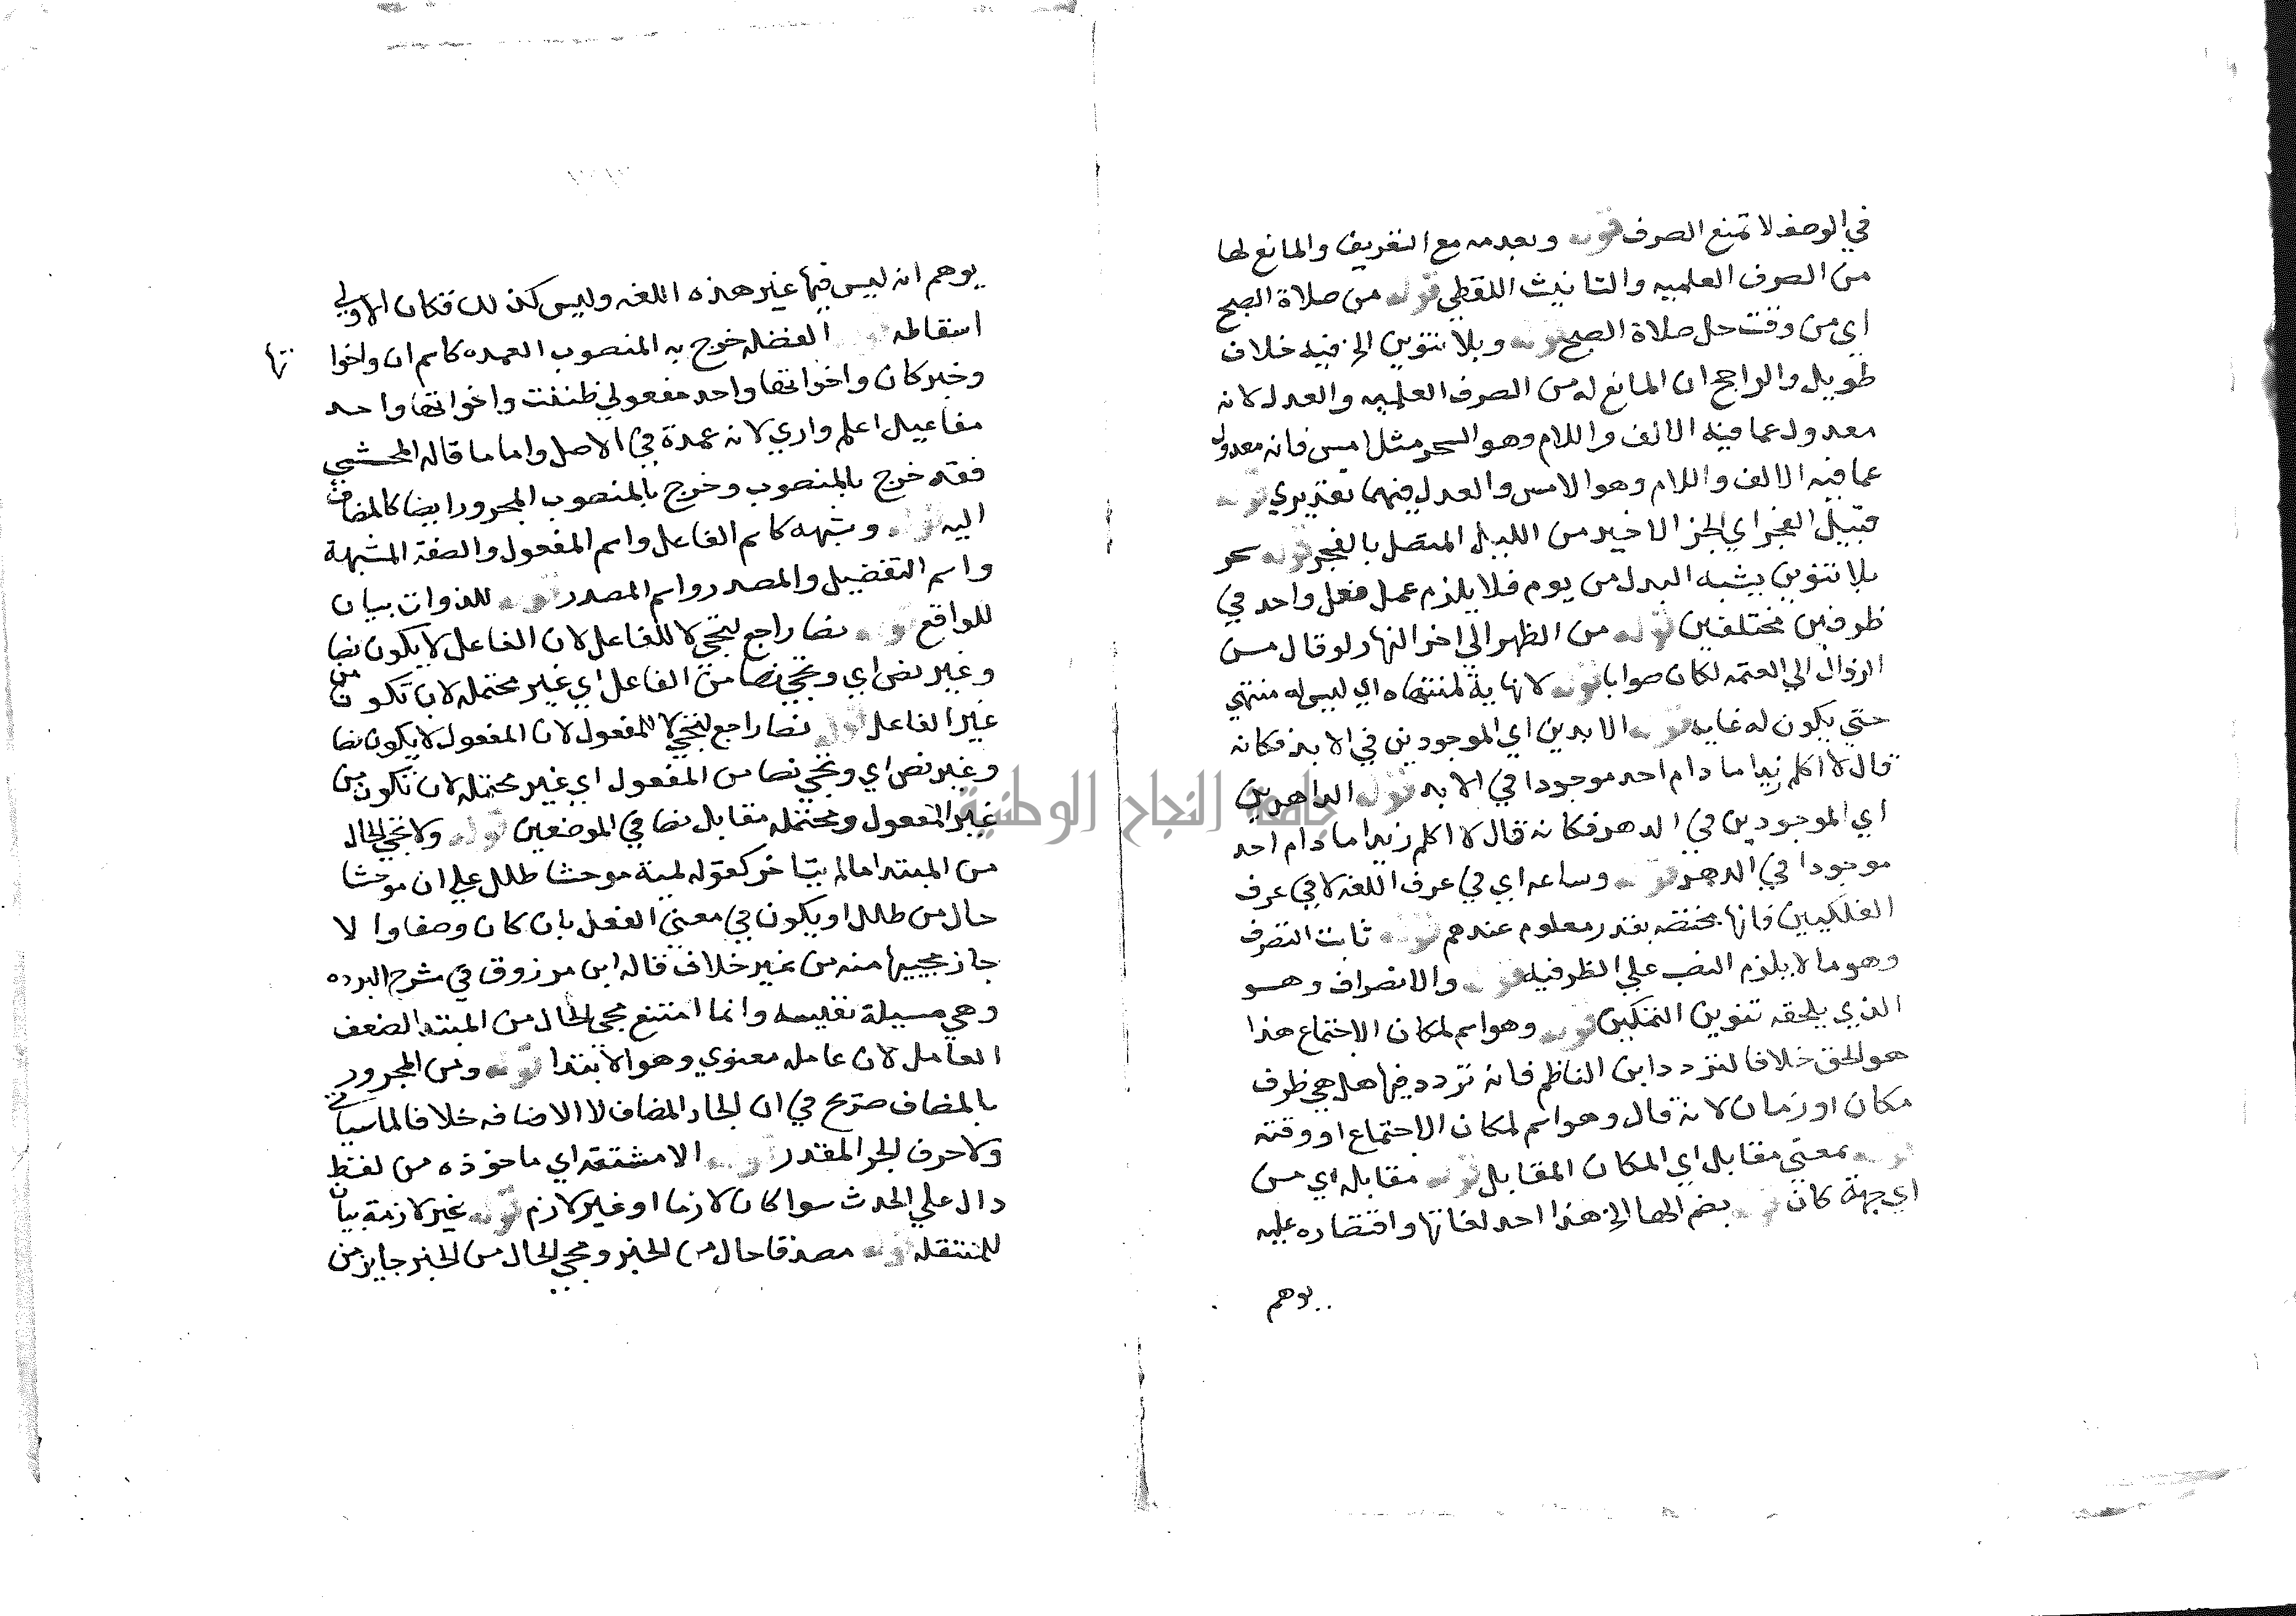 في الوصف لا تمنع الصرف قوله وبعدمه مع التعريف والمانع لها
من الصرف العلميه والتانيث اللفظي قوله من صلاة الصبح
اي من وقت حل صلاة الصبح قوله وبلا تنوين الخ فيه خلاف
طويل والراجح ان المانع له من الصرف العلميه والعدل لانه
معدول عما فيه الالف واللام وهو السحر مثل امس فانه معدول
عما فيه الالف واللام وهو الامس والعدل فيهما تقديري قوله
قبيل الفجر اي الجز الاخير من الليل المتصل بالفجر قوله سحر
بلا تنوين يشبه البدل من يوم فلا يلزم عمل فعل واحد في
ظرفين مختلفين قوله من الظهر الي اخر النهار لو قال من
الزوال الي العتمه لكان صوابا قوله لا نهاية لمنتهاه اي ليس له منتهي
حتي يكون له غايه قوله الابدين اي الموجودين في الابد فكانه
قال لا اكلم زيدا ما دام احد موجودا في الابد قوله الداهرين
اي الموجودين في الدهر فكانه قال لا اكلم زيدا ما دام احد
موجودا في الدهر قوله وساعه اي في عرف اللغه لا في عرف
الفلكيين فانها مختصه بقدر معلوم عندهم قوله ثابت التصرف
وهو ما لا يلزم النصب علي الظرفيه قوله والانصراف وهو
الذي يلحقه تنوين التمكين قوله وهو اسم لمكان الاجتماع هذا
هو الحق خلافا لتردد ابن الناظم فانه تردد فيها هل هي ظرف
مكان او زمان لانه قال وهو اسم لمكان الاجتماع او وقته
قوله بمعني مقابل اي المكان المقابل قوله مقابله اي من
اي جهة كان قوله بضم الها الخ هذا احد لغاتها واقتصاره عليه
يوهم
يوهم انه ليس فيها غير هذه اللغه وليس كذلك فكان الاولي
اسقاطه قوله الفضله خرج به المنصوب العمده كاسم ان واخوا
تها
وخبر كان واخواتها واحد مفعولي ظننت واخواتها واحد
مفاعيل اعلم واري لانه عمدة في الاصل واما ما قاله المحشي
فقد خرج بالمنصوب وخرج بالمنصوب المجرور ايضا كالمضاف
اليه قوله وشبهه كاسم الفاعل واسم المفعول والصفة المشبهة
واسم التفضيل والمصدر واسم المصدر قوله للذوات بيان
للواقع قوله نصا راجع لتجي لا للفاعل لان الفاعل لا يكون نصا
وغير نص اي وتجي نصا من الفاعل اي غير محتمله لان تكون من
غير الفاعل قوله نصا راجع لتجي لا للمفعول لان المفعول لا يكون نصا
وغير نص اي وتجي نصا من المفعول اي غير محتمله لان تكون من
غير المفعول ومحتمله مقابل نصا في الموضعين قوله ولا تجي الحال
من المبتدا ما لم يتاخر كقوله لمية موحشا طلل علي ان موحشا
حال من طلل او يكون في معني الفعل بان كان وصفا والا
جاز مجييها منه من غير خلاف قاله ابن مرزوق في شرح البرده
وهي مسيلة نفيسه وانما امتنع مجي الحال من المبتدا لضعف
العامل لان عامله معنوي وهو الابتدا قوله ومن المجرور
بالمضاف صريح في ان الجار المضاف لا الاضافه خلافا لما سياتي
ولا حرف الجر المقدر قوله الا مشتقه اي ماخوذه من لفظ
دال علي الحدث سوا كان لازما او غير لازم قوله غير لازمة بيان
للمنتقله قوله مصدقا حال من الخبر ومجي الحال من الخبر جايز من
جامعة النجاح الوطنية